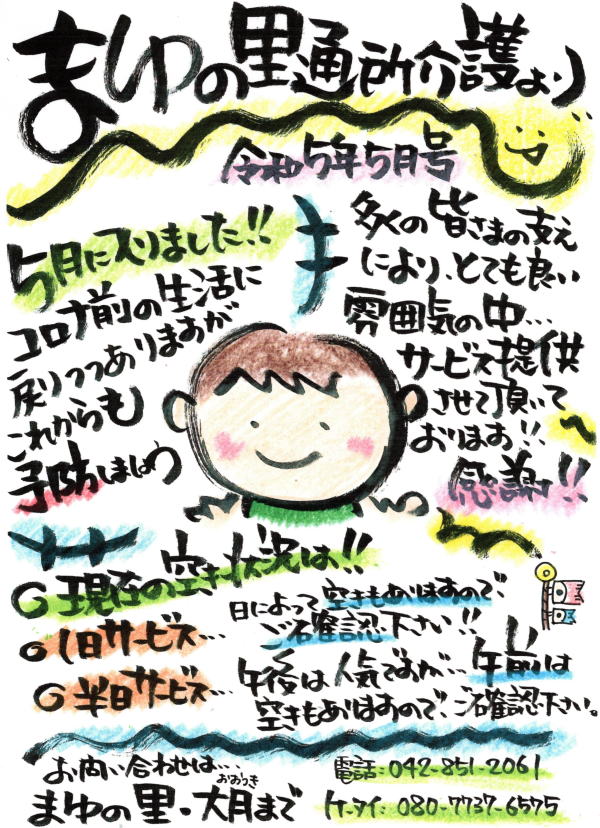 まゆの里通所介護より
令和5年5月号
5月に入りました!!
コロナ前の生活に
戻りつつありますが
これからも
予防しましょう
多くの皆さまの支え
により、とても良い
雰囲気の中…
サービス提供
させて頂いて
おります!!
感謝!!
◎現在の空き状況は!!
◎1日サービス…
日によって空きもありますので
ご確認下さい!!
◎半日サービス…
午後は人気ですが…午前は
空きもありますので、ご確認下さい。
お問い合わせは…
おおつき
まゆの里・大月まで
電話:042-851-2061
ケータイ:080-7737-6575